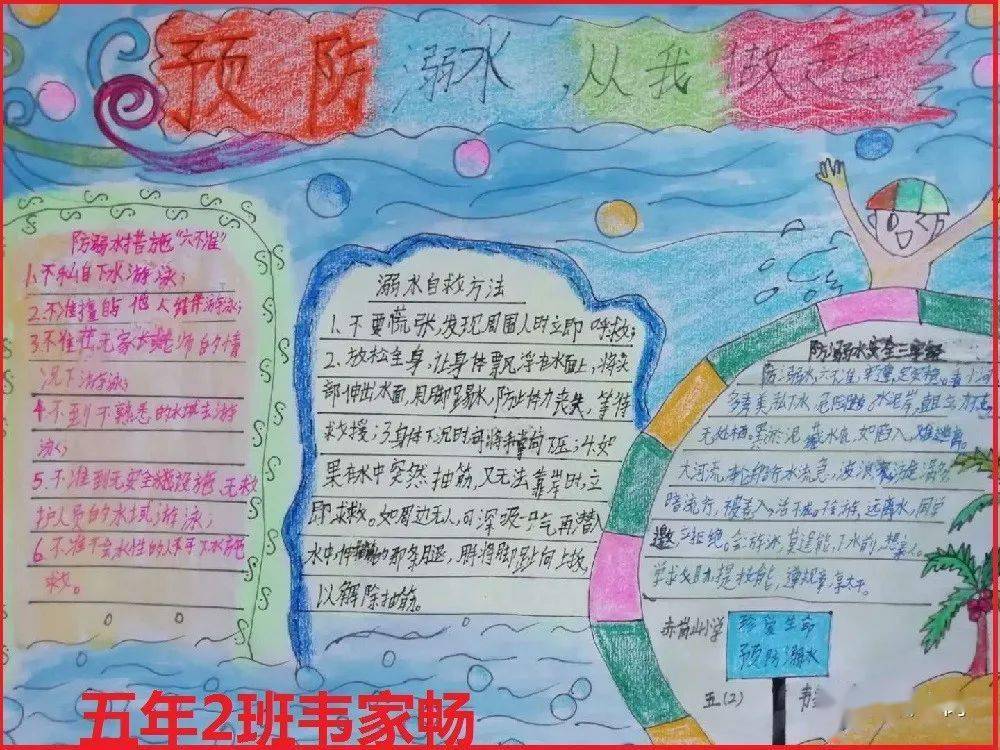 预防溺水,从我做起
防溺水措施“六不准”
1.不私自下水游泳;
2.不准擅自与他人结伴游泳;
3.不准在无家长或老师的情
况下游泳;
4.不到不熟悉的水域去游
泳;
5.不准到无安全设施、无救
护人员的水域游泳;
6.不准不会水性的人下水施
救。
溺水自救方法
1、不要慌张,发现周围人时立即呼救;
2、放松全身,让身体漂浮在水面上,将头
部伸出水面,用脚踢水,防止体力丧失,等待
救援;3身体下沉时可将手掌向下压;4.如
果在水中突然抽筋,又无法靠岸时,立
即求救。如周边无人,可深吸一口气再潜
水中,伸抽筋的那条腿,用将脚趾向上扳,
以解除抽筋。
防溺水安全三字经
防溺水,六不准,
无处梅。黑淤泥,藏水底,如陷入,难逃离。
大河流,
暗流行,被卷入,远离水,同学
邀,应拒绝。会游泳,莫逞能,下水前,想亲人。
学求救
赤岗小学
珍爱生命
预防溺水
五(2)
五年2班韦家畅